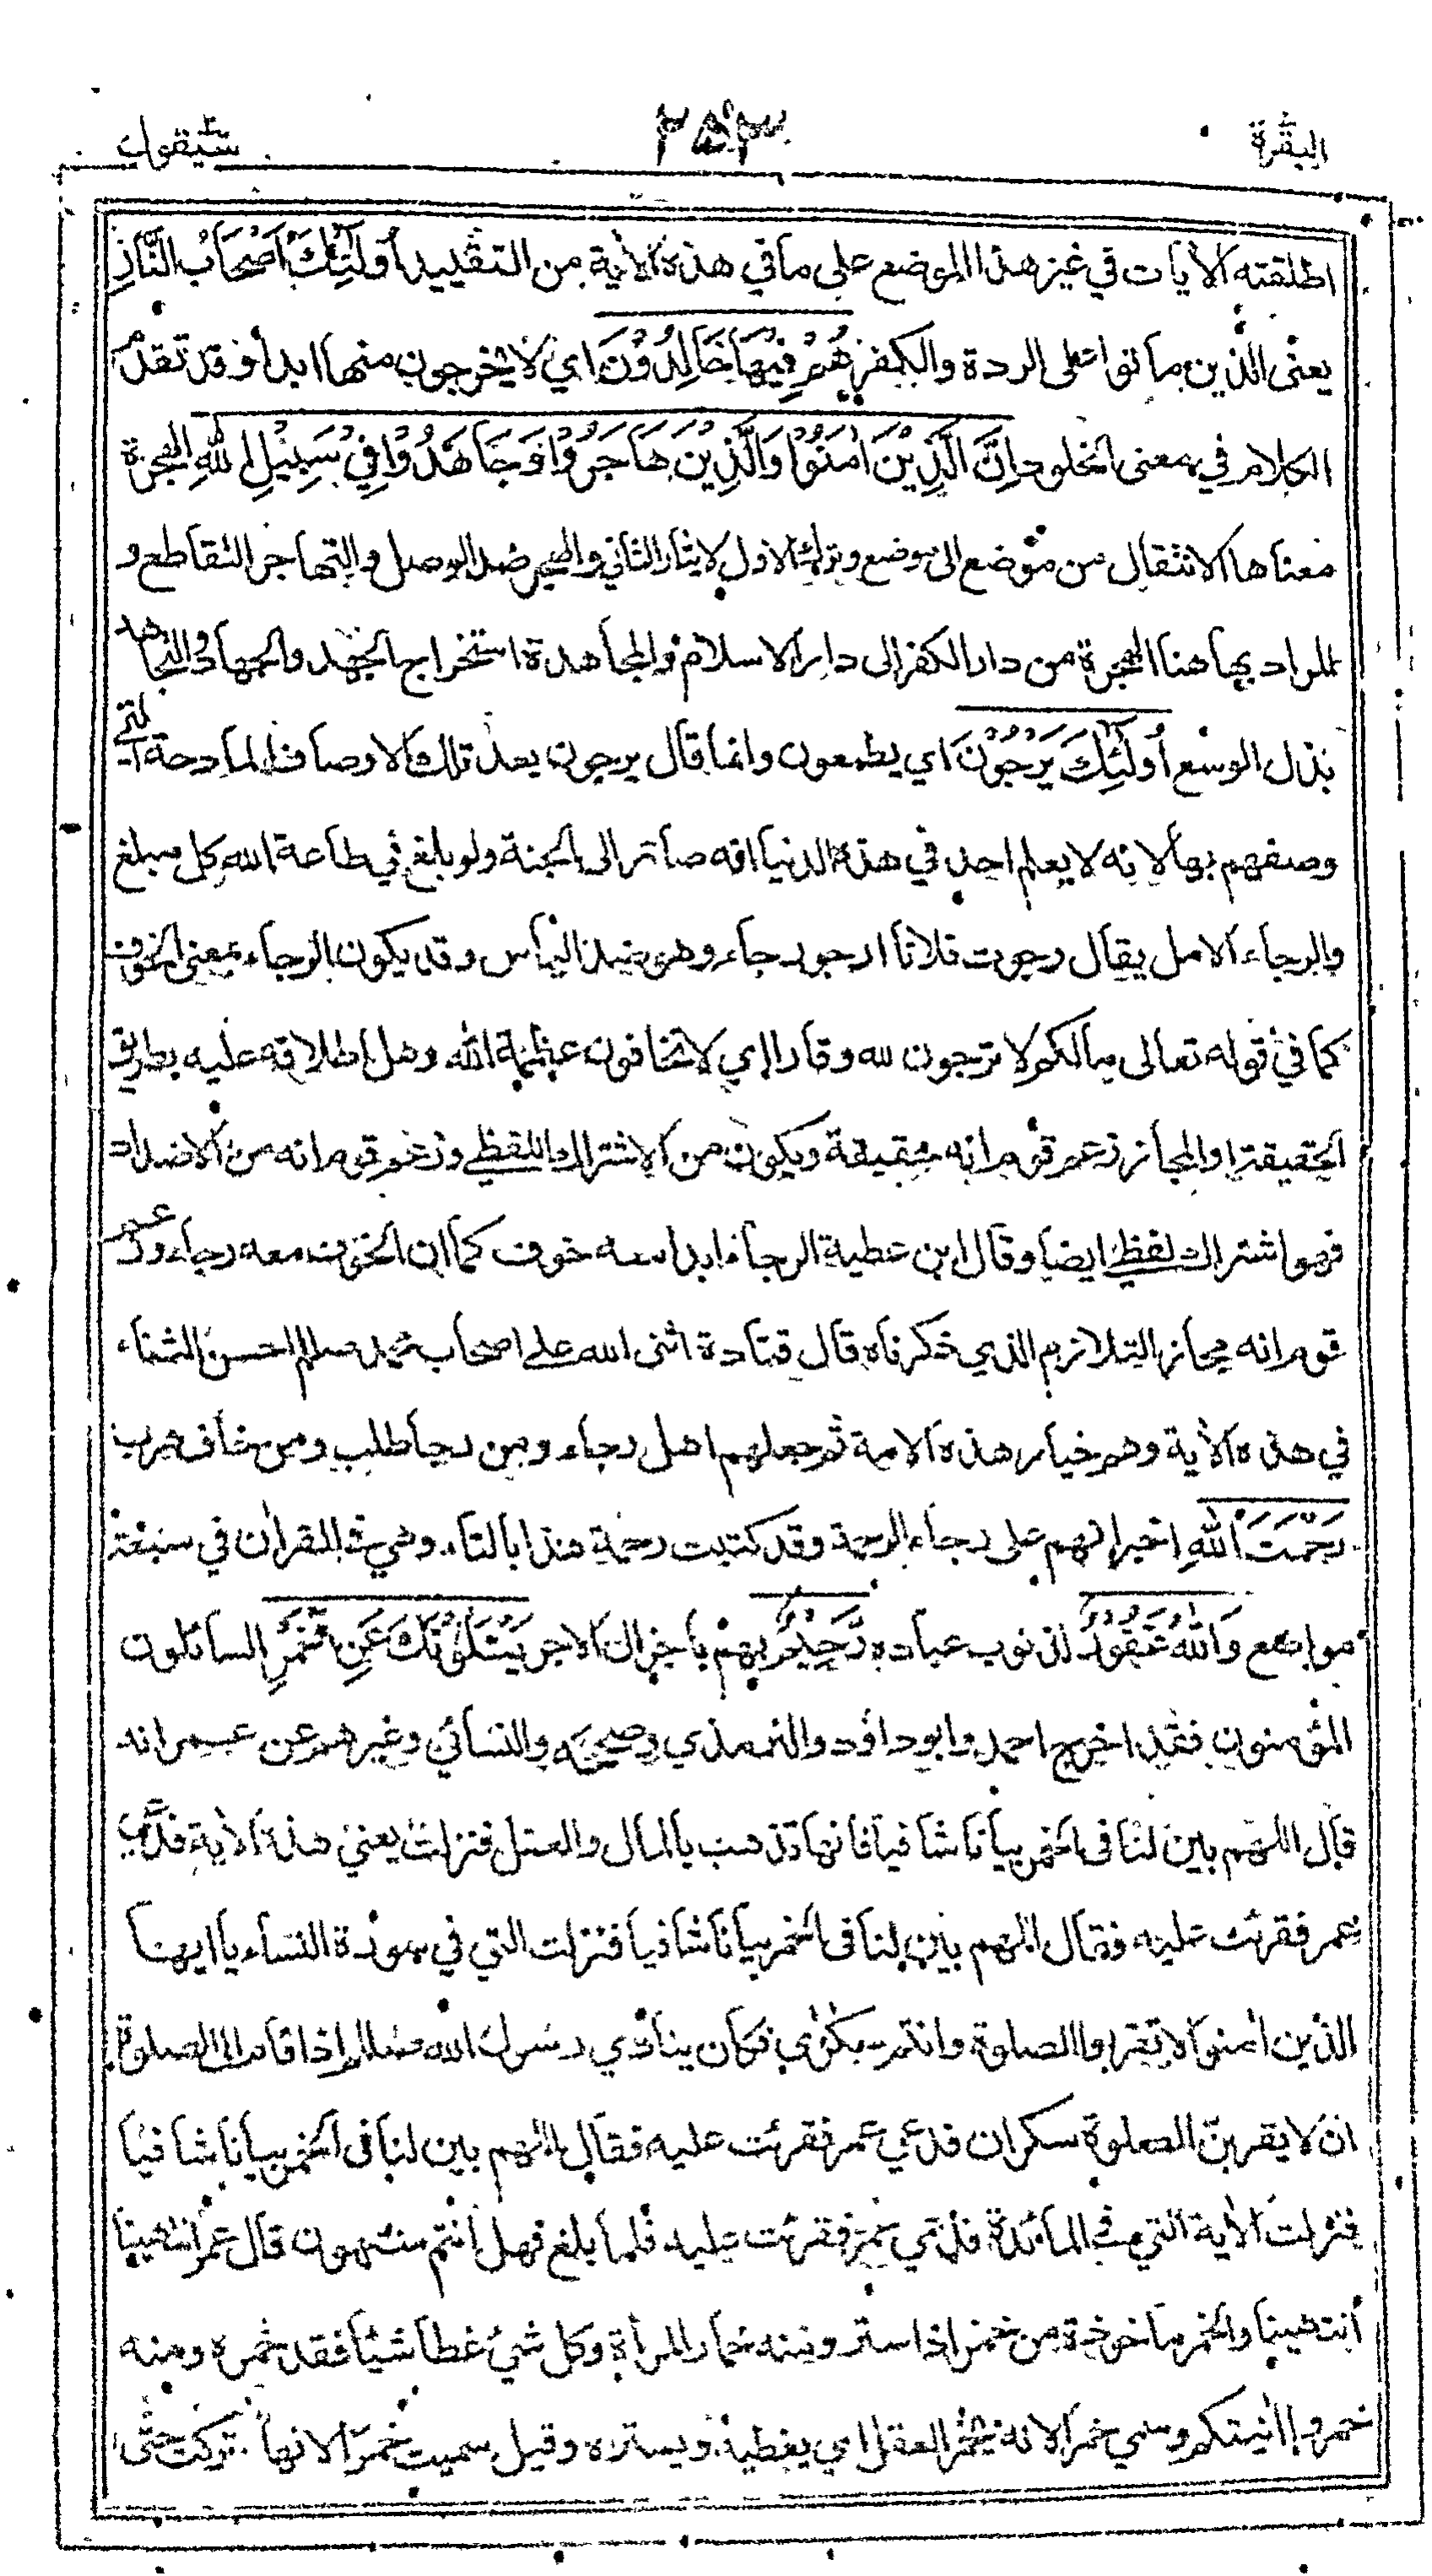 البقرة
٢٥٣
سيقول
اطلقته الآيات في غير هذا الموضع على ما في هذه الآية من التقييد أُولَٰئِكَ أَصْحَابُ النَّارِ
يعنى الذين ماتوا على الردة والكفر هُمْ فِيهَا خَالِدُوْنَ اي لا يخرجون منها ابدا وقد تقدم
الكلام في معنى الخلود إِنَّ الَّذِيْنَ اٰمَنُوْا وَالَّذِيْنَ هَاجَرُوْا وَجَاهَدُوْا فِيْ سَبِيْلِ اللهِ الهجرة
معناها الانتقال من موضع الى موضع وترك الاول لايثار الثاني والهجر ضد الوصل والتهاجر التقاطع و
المراد بها هنا الهجرة من دار الكفر الى دار الاسلام والمجاهدة استخراج الجهد والجهاد والتجاهد
بذل الوسع أُولَٰئِكَ يَرْجُوْنَ اي يطمعون وانما قال يرجون بعد تلك الاوصاف المادحة التي
وصفهم بها لانه لا يعلم احد في هذه الدنيا انه صائر الى الجنة ولو بلغ في طاعة الله كل مبلغ
والرجاء الامل يقال رجوت فلانا ارجو رجاء وهو ضد الياس وقد يكون الرجاء بمعنى الخوف
كما في قوله تعالى مالكم لا ترجون لله وقارا اي لا تخافون عظمة الله وهل اطلاقه عليه بطريق
الحقيقة او المجاز زعم قوم انه حقيقة ويكون من الاشتراك اللفظي وزعم قوم انه من الاضداد
فهو اشتراك لفظي ايضا وقال ابن عطية الرجاء ابدا معه خوف كما ان الخوف معه رجاء وزعم
قوم انه مجاز التلازم الذي ذكرناه قال قتادة اثنى الله على اصحاب محمد صللم احسن الثناء
في هذه الآية وهم خيار هذه الامة ثم جعلهم اهل رجاء ومن رجا طلب ومن خاف هرب
رَحْمَتَ اللهِ اخبر انهم على رجاء الرحمة وقد كتبت رحمة هنا بالتاء وهي في القرآن في سبعة
مواضع وَاللهُ غَفُوْرٌ لذنوب عباده رَّحِيْمٌ بهم باجزال الاجر يَسْئَلُوْنَكَ عَنِ الْخَمْرِ السائلون
المؤمنون فقد اخرج احمد وابو داؤد والترمذي وصححه والنسائي وغيرهم عن عمر انه
قال اللهم بين لنا فى الخمر بيانا شافيا فانها تذهب بالمال والعقل فنزلت يعني هذه الآية فدعي
عمر فقرئت عليه فقال اللهم بين لنا فى الخمر بيانا شافيا فنزلت التي في سورة النساء يا ايها
الذين اٰمنوا لا تقربوا الصلوة وانتم سكارى فكان ينادي رسول الله صللم اذا قام الى الصلوة
ان لا يقربن الصلوة سكران فدعي عمر فقرئت عليه فقال اللهم بين لنا فى الخمر بيانا شافيا
فنزلت الآية التي في المائدة فدعي عمر فقرئت عليه فلما بلغ فهل انتم منتهون قال عمر انتهينا
انتهينا والخمر ماخوذة من خمر اذا ستر ومنه خمار المرأة وكل شيء غطا شيئا فقد خمره ومنه
خمروا اٰنيتكم وسمي خمرا لانه يخمر العقل اي يغطيه ويستره وقيل سميت خمرا لانها تركت حتى